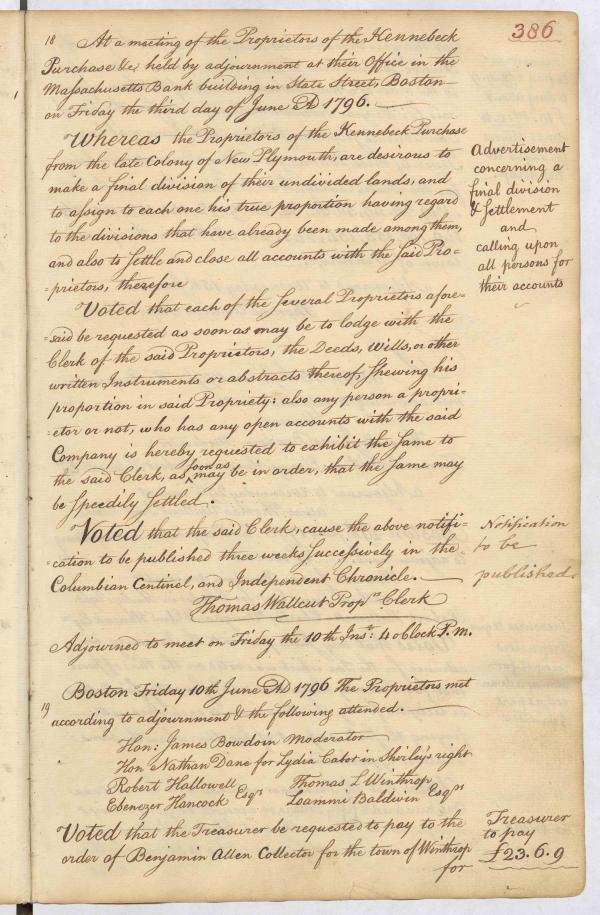 386
18 At a meeting of the Proprietors of the Kennebeck
Purchase &c: held by adjournment at their Office in the
Massachusetts Bank building in State Street, Boston
on Friday the third day of June AD 1796.
Whereas the Proprietors of the Kennebeck Purchase
from the late Colony of New Plymouth, are desirous to
make a final division of their undivided lands, and
to assign to each one his true proportion having regard
to the divisions that have already been made among them,
and also to settle and close all accounts with the said Pro=
=prietors, therefore
Advertisement
concerning a
final division
& settlement
and
calling upon
all persons for
their accounts
Voted that each of the several Proprietors afore=
=said be requested as soon as may be to lodge with the
Clerk of the said Proprietors, the Deeds, Wills, or other
written Instruments or abstracts thereof, shewing his
proportion in said Propriety: also any person a propri=
=etor or not, who has any open accounts with the said
Company is hereby requested to exhibit the same to
the said Clerk, as soon as may be in order, that the same may
be speedily settled.
Voted that the said Clerk, cause the above notifi=
=cation to be published three weeks successively in the
Columbian Centinel, and Independent Chronicle.
Notification
to be
published.
Thomas Wallcut Prop.rs Clerk
Adjourned to meet on Friday the 10th Inst: 4 oClock P.m.
19 Boston Friday 10th June AD 1796 The Proprietors met
according to adjournment & the following attended.
Hon: James Bowdoin Moderator
Hon Nathan Dane for Lydia Cabot in Shirley's right
Robert Hallowell Thomas L Winthrop
Ebenezer Hancock Esqrs Loammi Baldwin Esqrs
Voted that the Treasurer be requested to pay to the
order of Benjamin Allen Collector for the town of Winthrop
for
Treasurer
to pay
£23.6.9